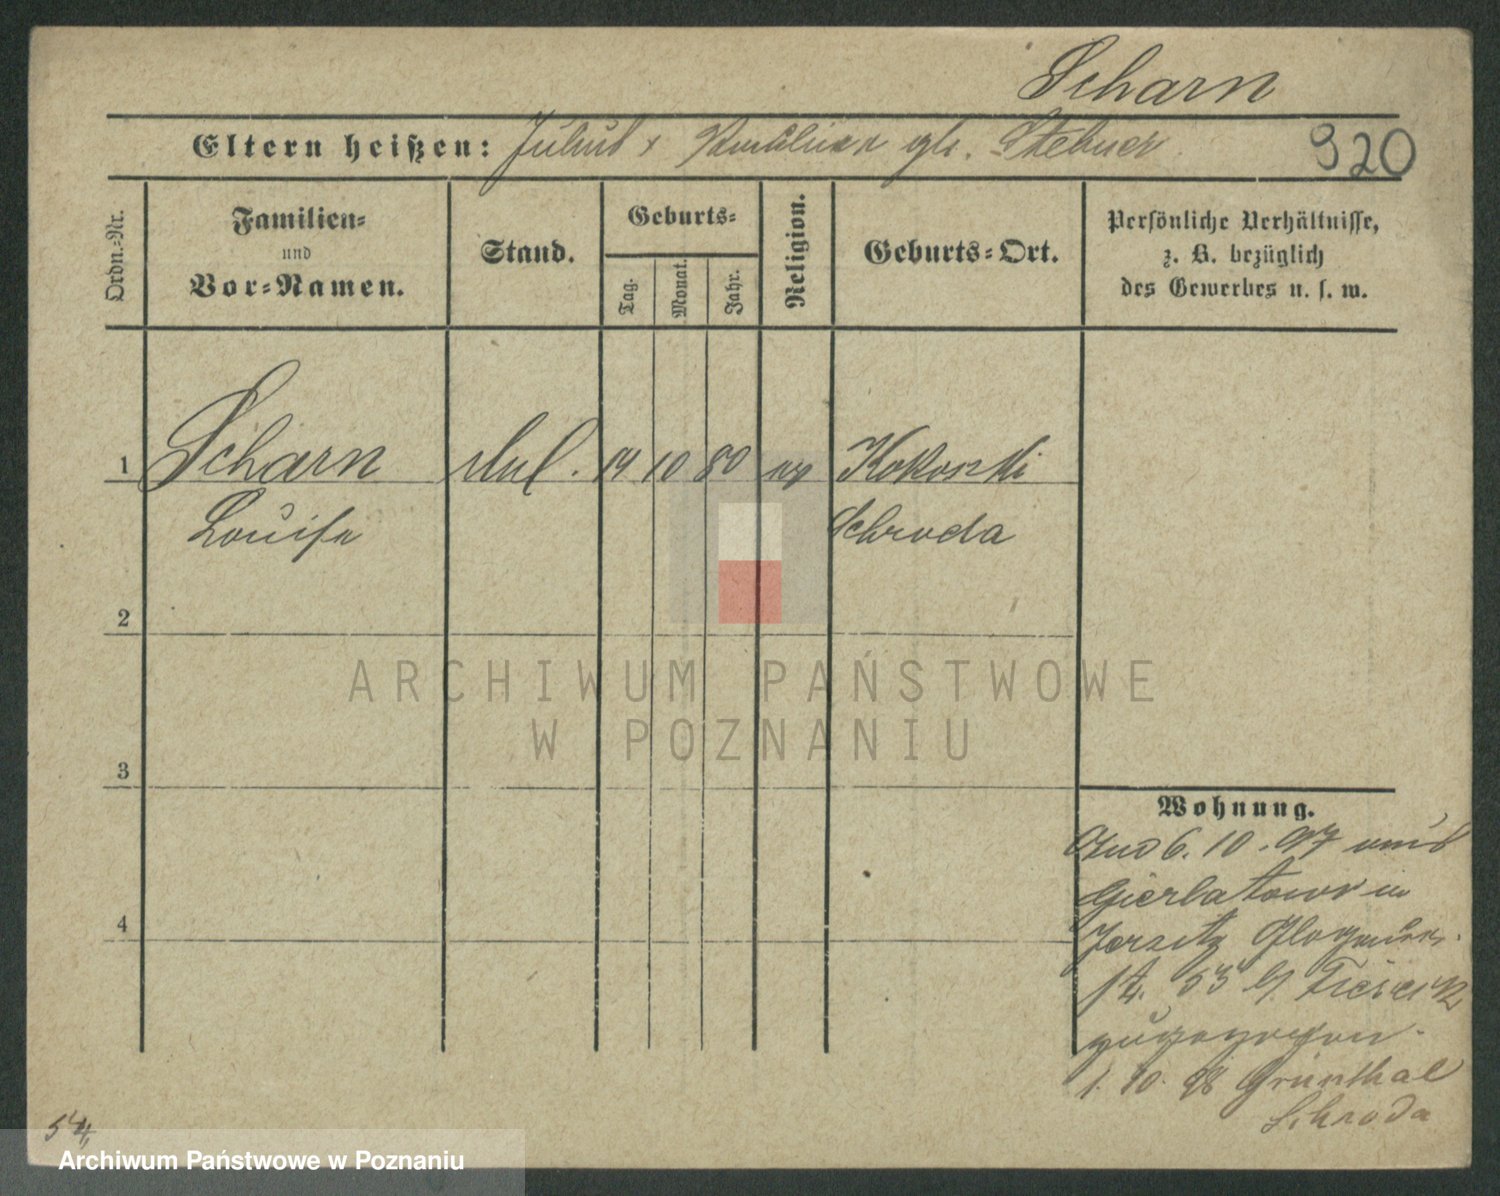 Scharn
Eltern heißen: Julius & geb. Stebner
920
Ordn.-Nr.
Familien-
und
Vor-Namen.
Stand.
Geburts-
Tag.
Monat.
Jahr.
Religion.
Geburts-Ort.
Persönliche Verhältnisse,
z. B. bezüglich
des Gewerbes u. s. w.
1 Scharn 14 10 80 ev Kokoszki
Louise Schroda
2
3
4
Wohnung.
6. 10. 97 aus
Gierlatowo in
Jersitz Glogauer
st. 53 b/
zugezogen.
1. 10. 98 Grünthal
Schroda
54,
ARCHIWUM PAŃSTWOWE
W POZNANIU
Archiwum Państwowe w Poznaniu